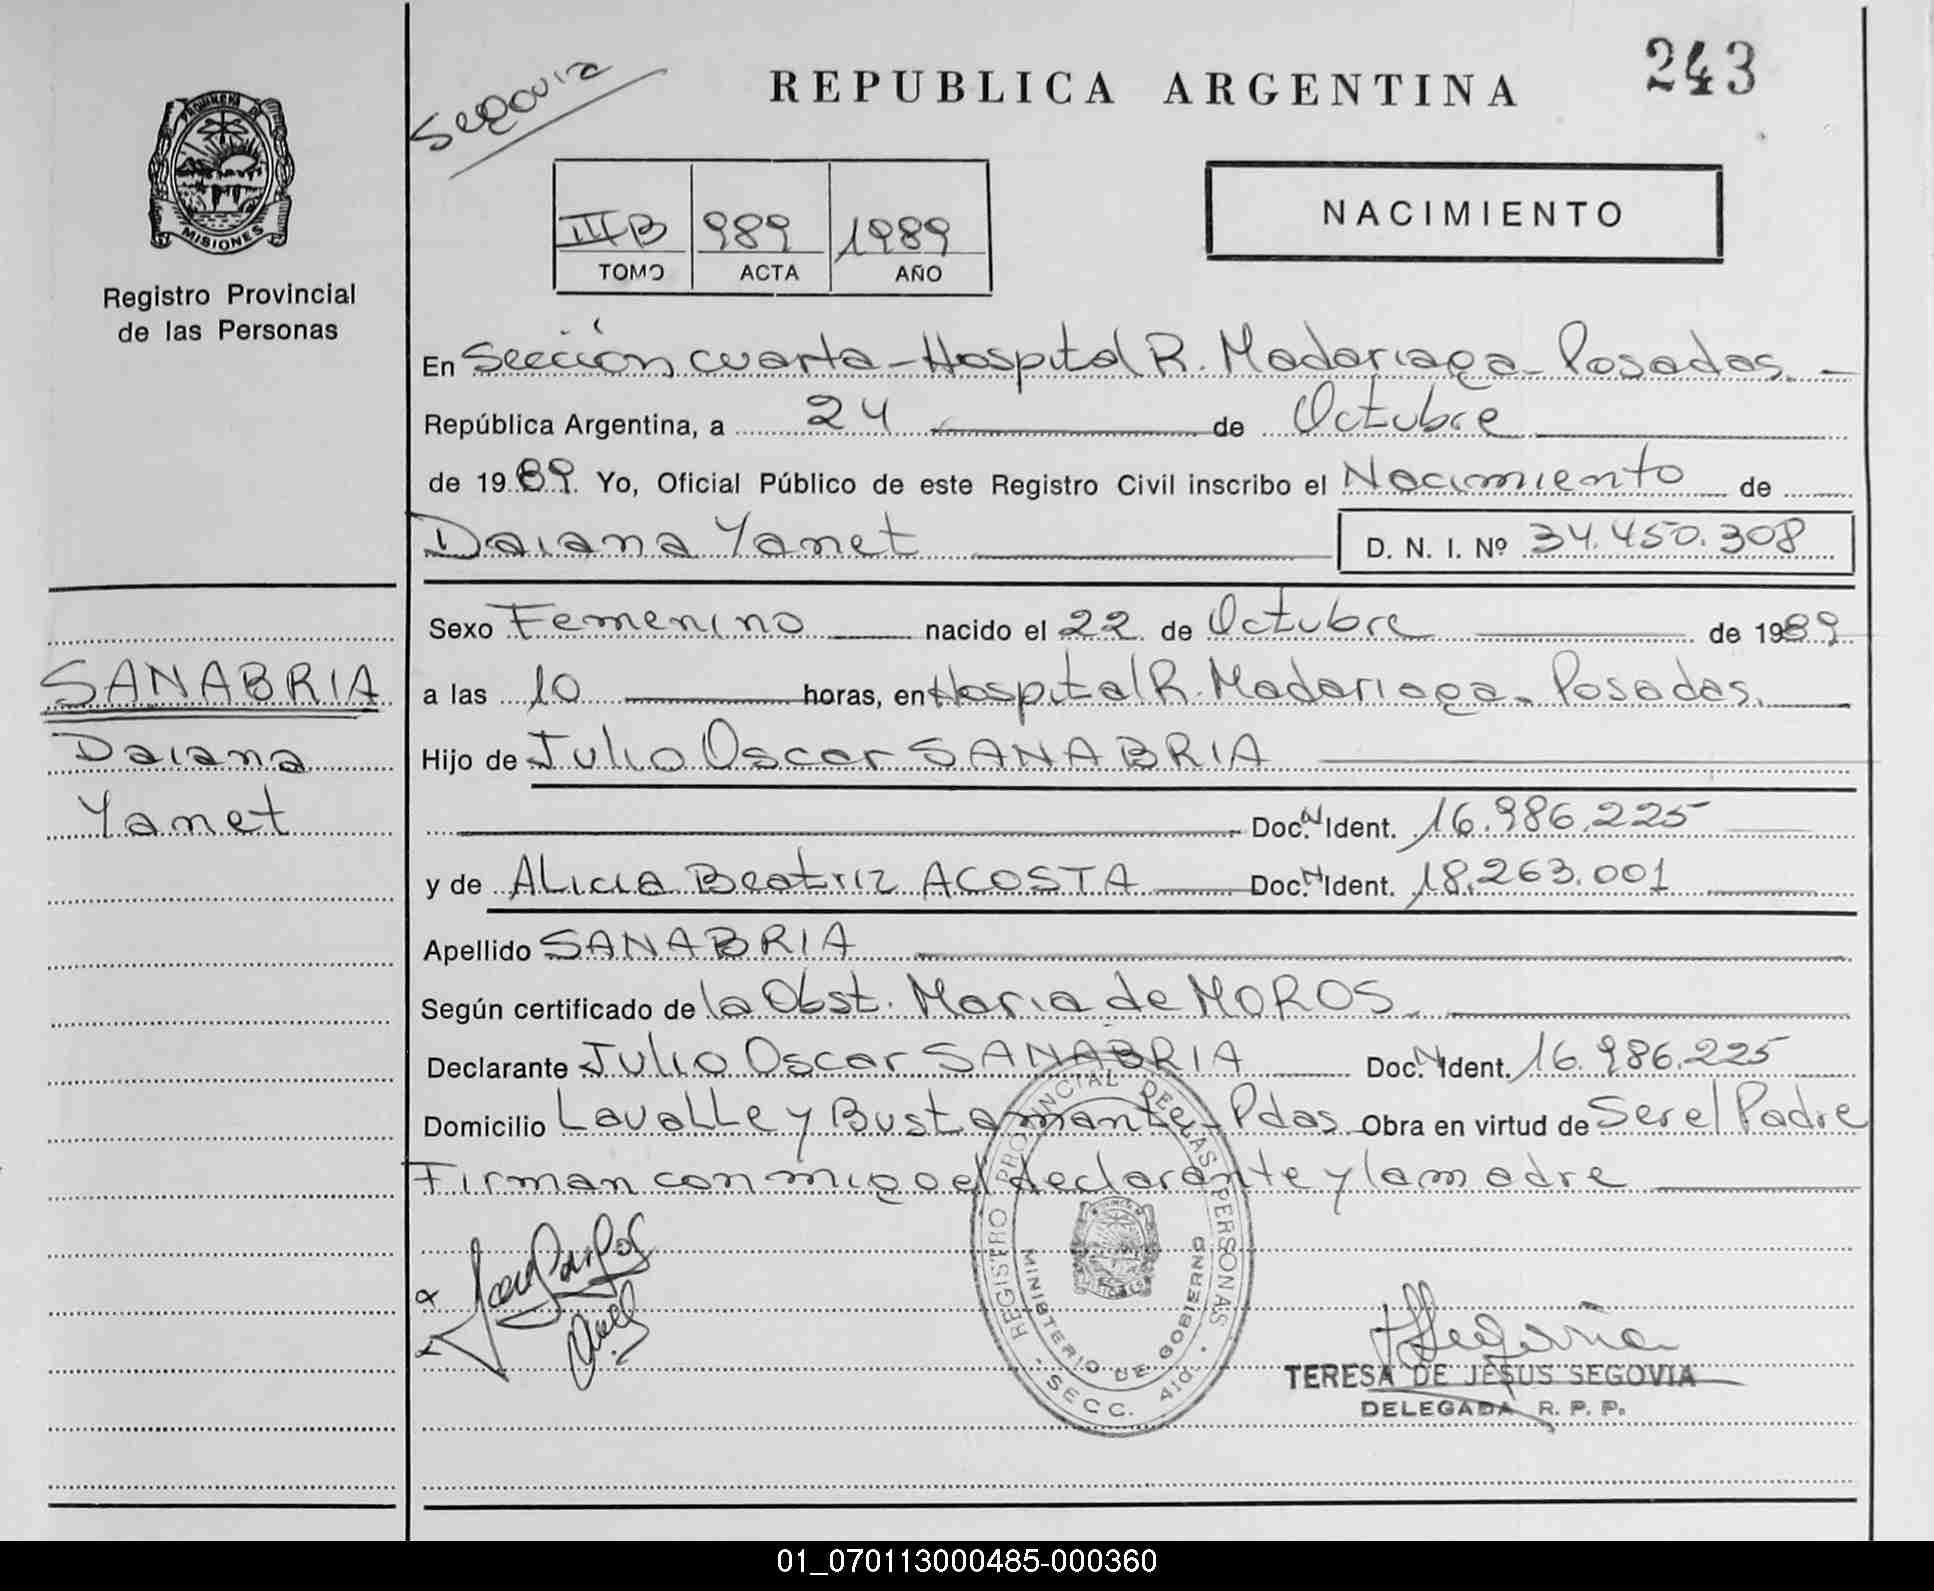 243
Segovia
REPUBLICA ARGENTINA
PROVINCIA DE
MISIONES
Registro Provincial
de las Personas
IIIB 989 1989
TOMO ACTA AÑO
NACIMIENTO
En Sección cuarta - Hospital R. Madariaga - Posadas. -
República Argentina, a 24 de Octubre
de 1989. Yo, Oficial Público de este Registro Civil inscribo el Nacimiento de
Daiana Yanet D. N. I. Nº 34.450.308
Sexo Femenino nacido el 22 de Octubre de 1989
a las 10 horas, en Hospital R. Madariaga - Posadas.
Hijo de Julio Oscar SANABRIA
Doc. N Ident. 16.986.225
y de ALicia Beatriz ACOSTA Doc. N Ident. 18.263.001
Apellido SANABRIA
Según certificado de la Obst. Maria de MOROS
Declarante Julio Oscar SANABRIA Doc. N Ident. 16.986.225
Domicilio LavaLLe y Bustamante - Pdas Obra en virtud de Ser el Padre
Firman conmigo el declarante y la madre
SANABRIA
Daiana
Yanet
REGISTRO PROVINCIAL DE LAS PERSONAS
MINISTERIO DE GOBIERNO
- SECC. 4ta. -
Segovia
TERESA DE JESUS SEGOVIA
DELEGADA R. P. P.
01_070113000485-000360